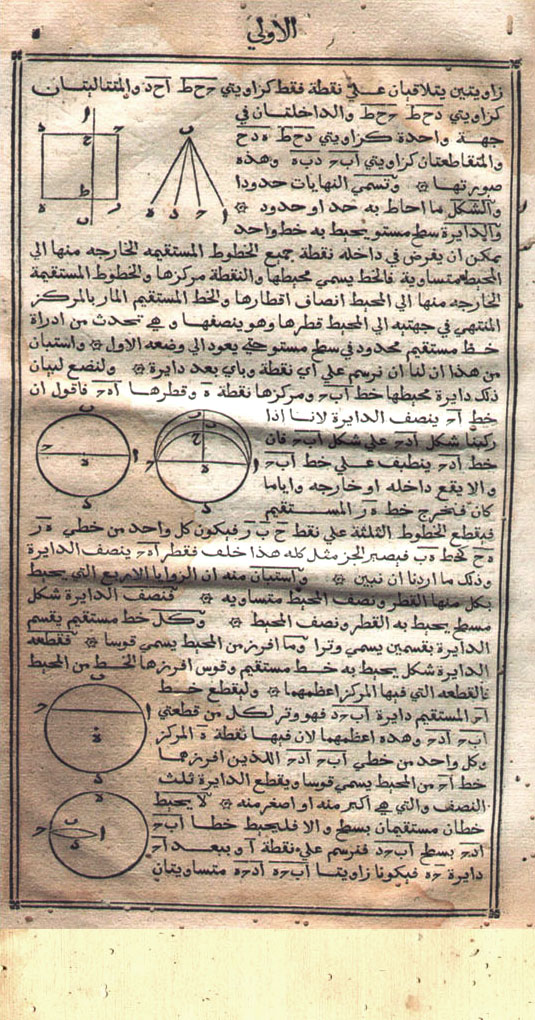 الاولي
زاويتين يتلاقيان علي نقطة فقط كزاويتي حح‍ط احد والمتقابلتان
كزاويتي دح‍ط ح‍ح‍ط والداخلتان في
جهة واحدة كزاويتي دح‍ط ه‍دح
والمتقاطعتان كزاويتي اب‍ح دب‍ه وهذه
صورتها ۞ وتسمي النهايات حدودا
والشكل ما احاط به حد او حدود ۞
والدايرة سطح مستو يحيط به خط واحد
يمكن ان يفرض في داخله نقطة جميع الخطوط المستقيمه الخارجه منها الي
المحيط متساوية فالخط يسمي محيطها والنقطة مركزها والخطوط المستقيمة
الخارجه منها الي المحيط انصاف اقطارها والخط المستقيم المار بالمركز
المنتهي في جهتيه الي المحيط قطرها وهو ينصفها وهي تحدث من ادراة
خط مستقيم محدود في سطح مستو حتي يعود الي وضعه الاول ۞ واستبان
من هذا ان لنا ان نرسم علي اي نقطة وباي بعد دايرة ۞ ولنضع لبيان
ذلك دايرة محيطها خط اب‍ح ومركزها نقطة ه وقطرها اه‍ح فاقول ان
خط اح ينصف الدايرة لانا اذا
ركبنا شكل ادح علي شكل اب‍ح فان
خط ادح ينطبف علي خط اب‍ح
والا يقع داخله او خارجه واياما
كان فنخرج خط ه‍ز المستقيم
فيقطع الخطوط الثلثة علي نقط ح ب ز فيكون كل واحد من خطي ه‍ز
ه‍ح كخط ه‍ب فيصير الجز مثل كله هذا خلف فقطر اه‍ح ينصف الدايرة
وذلك ما اردنا ان نبين ۞ واستبان منه ان الزوايا الاربع التي يحيط
بكل منها القطر ونصف المحيط متساويه ۞ فنصف الدايرة شكل
مسطح يحيط به القطر ونصف المحيط ۞ وكل خط مستقيم يقسم
الدايرة بقسمين يسمي وترا وما افرز من المحيط يسمي قوسا ۞ فقطعه
الدايرة شكل يحيط به خط مستقيم وقوس افرزها الخط من المحيط
فالقطعه التي فيها المركز اعظمهما ۞ وليقطع خط
اح المستقيم دايرة اب‍حد فهو وتر لكل من قطعتي
اب‍ح ادح وهذه اعظمهما لان فيها نقطة ه المركز
وكل واحد من خطي اب‍ح ادح اللذين افرزهما
خط اح من المحيط يسمي قوسا ويقطع الدايرة ثلث
النصف والتي هي اكبر منه او اصغر منه ۞ لا يحيط
خطان مستقيمان بسطح والا فليحيط خطا اب‍ح
ادح بسطح اب‍حد فنرسم علي نقطة ا وببعد اح
دايرة ح‍ه فيكونا زاويتا اب‍ح‍ه ادح‍ه متساويتان